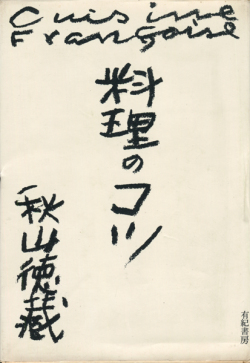 Cuisine
Françoise
料理のコツ
秋山徳蔵
有紀書房